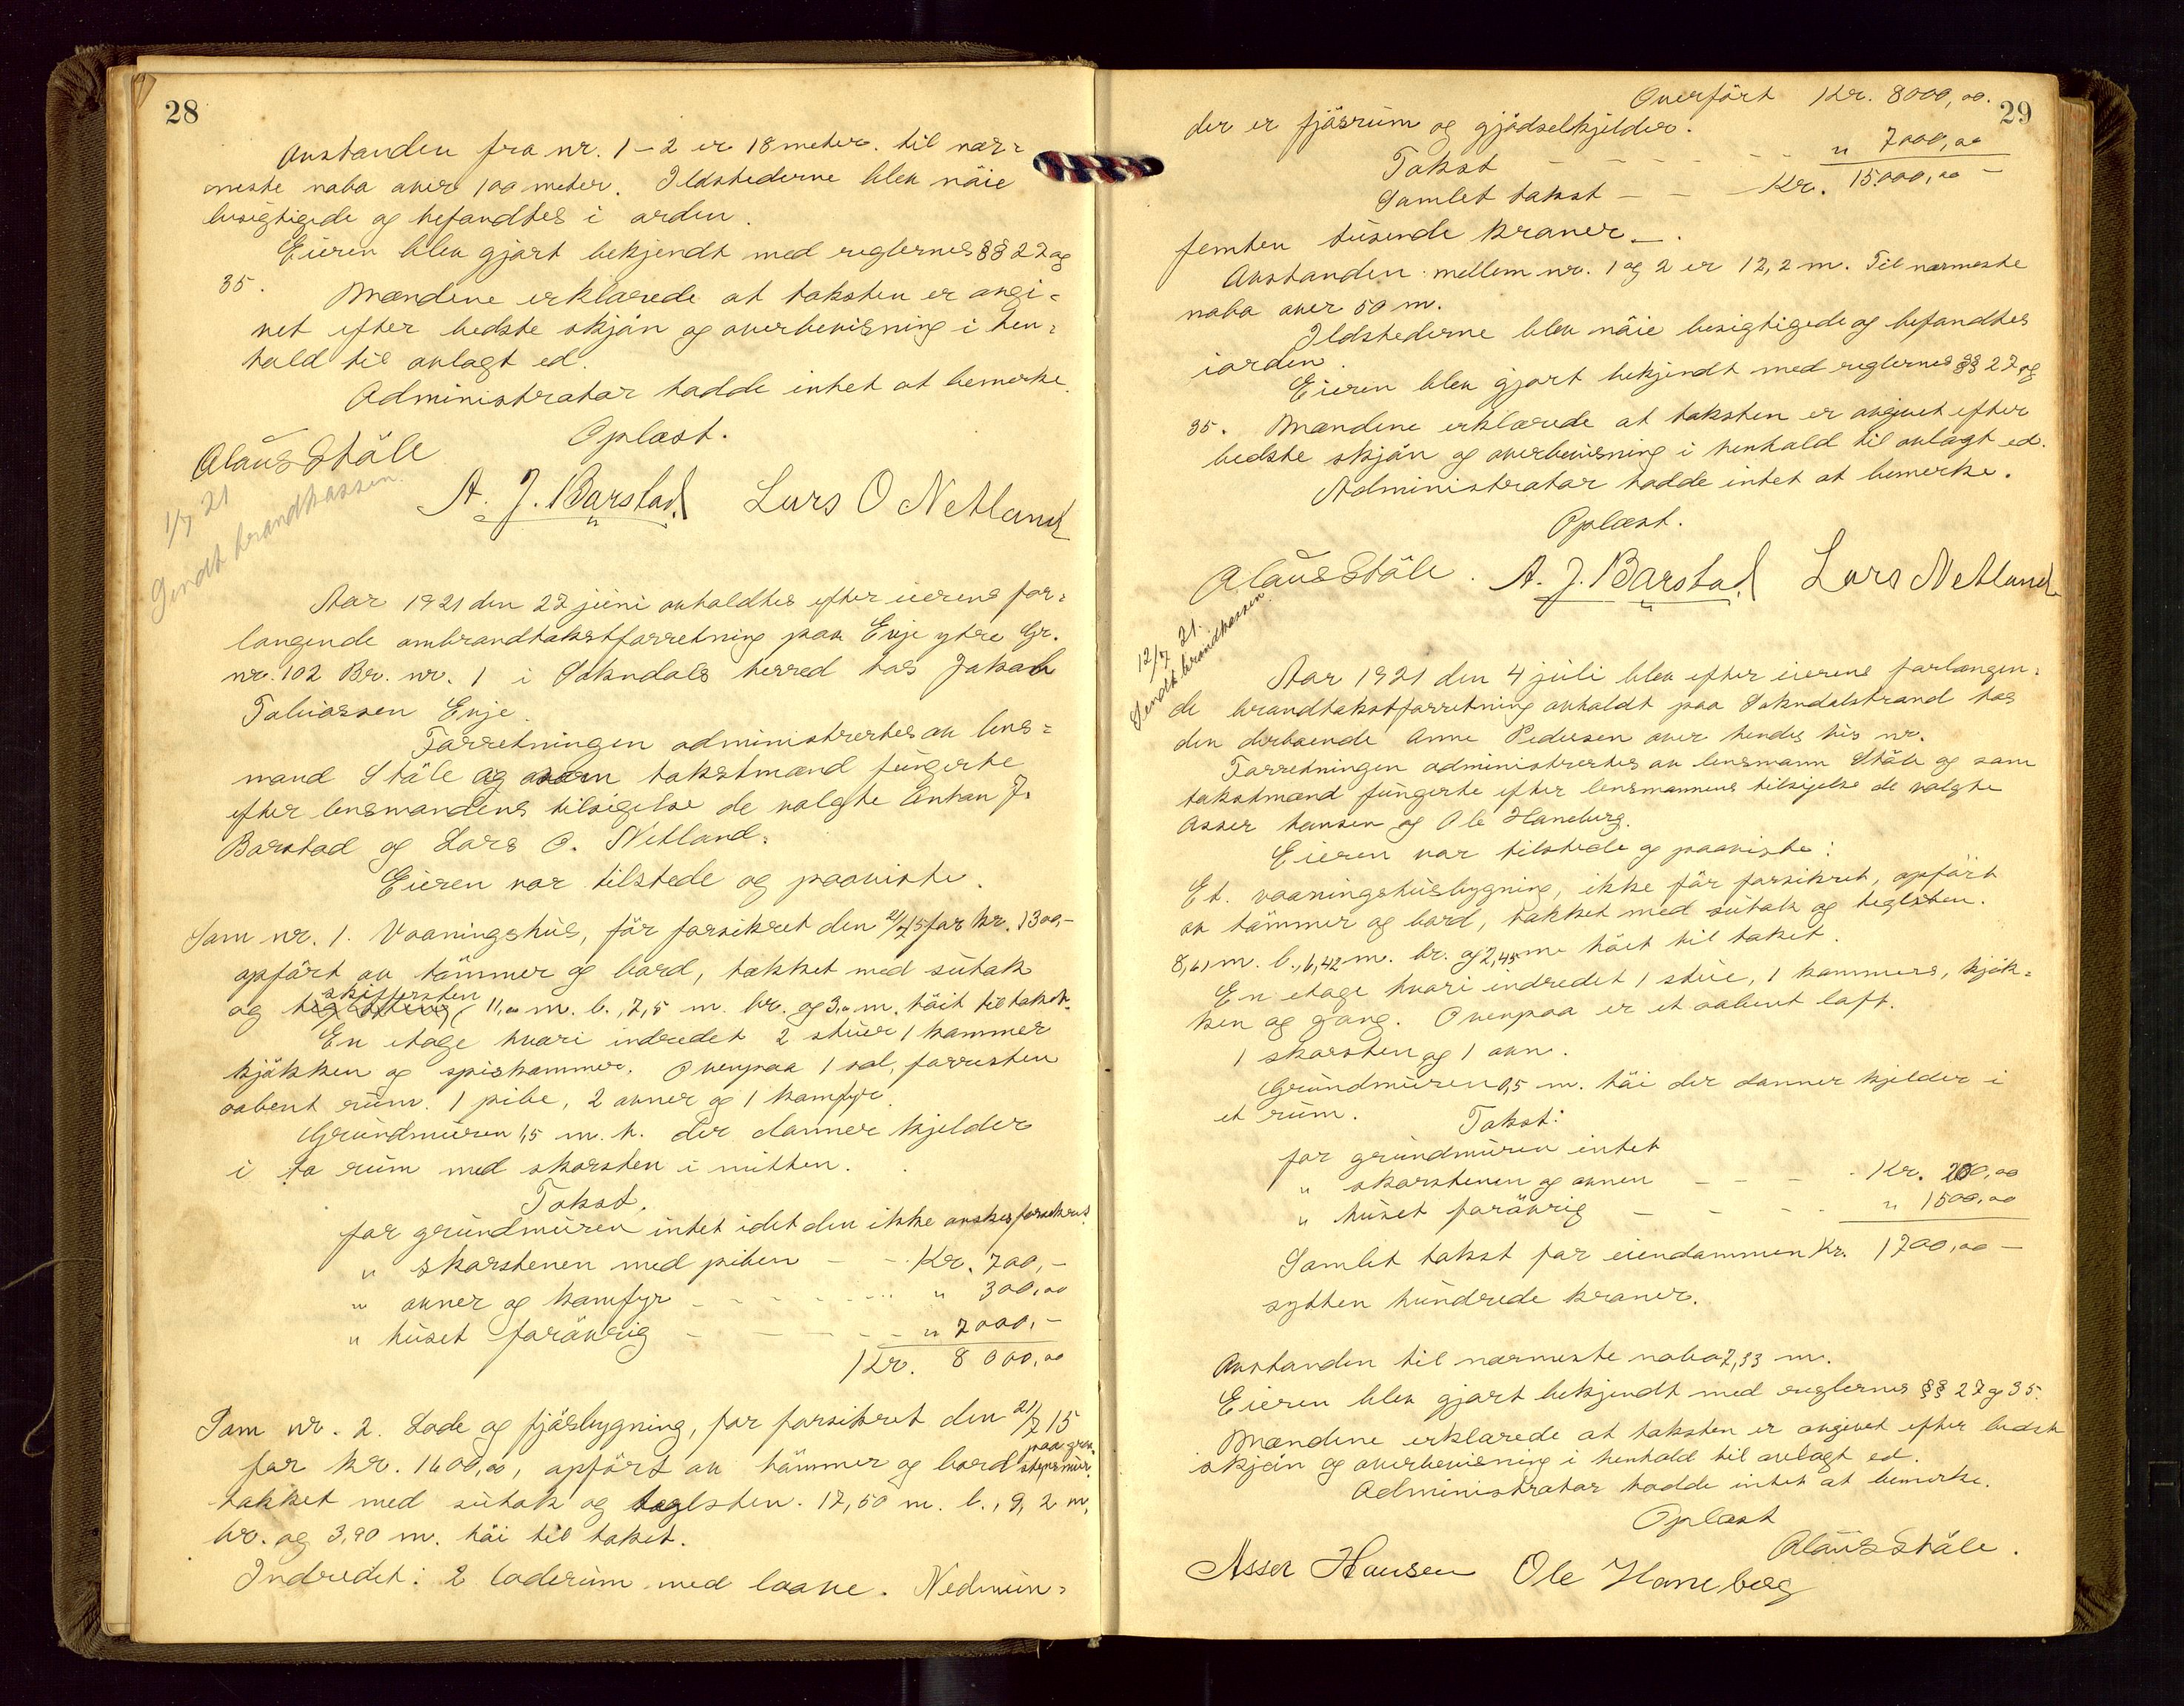 28
Avstanden fra nr. 1 – 2 er 18 meter. til nær=
meste nabo over 100 meter. Ildstederne blev nöie
besigtigede og befandtes i orden.
Eieren blev gjort bekjendt med reglernes §§ 27 og
35. Mændene erklærede at taksten er avgi=
vet efter bedste skjön og overbevisning i hen=
hold til avlagt ed.
Administrator hadde intet at bemerke.
Oplæst.
Olaus Ståle
A. J. Barstad Lars O Netland
1/7 21
Sendt brandkassen.
Aar 1921 den 27 juni avholdtes efter eierens for=
langende ombrandtakstforretning paa Evje ytre Gr.
nr. 102 Br. nr. 1 i Sokndals herred hos Jakob
Tobiassen Evje.
Forretningen administrertes av lens=
mand Ståle og som takstmænd fungerte
efter lensmandens tilsigelse de valgte Anton J.
Barstad og Lars O. Netland.
Eieren var tilstede og paaviste.
Som nr. 1. Vaaningshus, för forsikret den 21/7 15 for kr. 1300,–
opfört av tömmer og bord, tækket med sutak
og teglsten skiffersten 11,00 m. l., 7,5 m. br. og 3,0 m. höit til taket.
En etage hvori indredet 2 stuer 1 kammer
kjökken og spiskammer. Ovenpaa 1 sal, forresten
aabent rum. 1 pibe, 2 ovner og 1 komfyr.
Grundmuren 1,5 m. h. der danner kjelder
i to rum med skorsten i mitten.
Takst.
for grundmuren intet idet den ikke önskes forsikret.
" skorstenen med piben – – Kr. 700,–
" ovner og komfyr – – – " 300,00
" huset forövrig – – – – " 7000,–
Kr. 8000,00
Som nr. 2. Lade og fjösbygning, för forsikret den 21/7 15
for kr. 1600,00, opfört av tömmer og bord paa graa-
stensmur.
tækket med sutak og teglsten. 17,50 m. l., 9,2 m.
br. og 3,90 m. höi til taket.
Indredet: 2 laderum med laave. Nedenun=
29
Overfört Kr. 8000,00.
der er fjösrum og gjödselkjelder.
Takst – – – – – " 7000,00
Samlet takst – – Kr. 15.000,00 –
femten tusende kroner –.
Avstanden mellem nr. 1 og 2 er 12,2 m. Til nærmeste
nabo over 50 m.
Ildstederne blev nöie besigtigede og befandtes
i orden.
Eieren blev gjort bekjendt med reglernes §§ 27 og
35. Mændene erklærede at taksten er avgivet efter
bedste skjön og overbevisning i henhold til avlagt ed.
Administrator hadde intet at bemerke.
Oplæst.
Olaus Ståle. A. J. Barstad Lars Netland
12/7 21.
Sendt brandkassen.
Aar 1921 den 4 juli blev efter eierens forlangen=
de brandtakstforretning avholdt paa Sokndalstrand hos
den derboende Anne Pedersen over hendes hus nr.
Forretningen administrertes av lensmann Ståle og som
takstmænd fungerte efter lensmannens tilsigelse de valgte
Asser Hansen og Ole Haneberg.
Eieren var tilstede og paaviste:
Et vaaningshusbygning, ikke för forsikret, opfört
av tömmer og bord, tækket med sutak og teglsten.
8,61 m. l., 6,42 m. br. og 2,45 m höit til taket.
En etage hvori indredet 1 stue, 1 kammers, kjök=
ken og gang. Ovenpaa er et aabent loft.
1 skorsten og 1 ovn.
Grundmuren 0,5 m. höi der danner kjelder i
et rum.
Takst:
for grundmuren intet
" skorstenen og ovnen – – – Kr. 200,00
" huset forövrig – – – – " 1500,00
Samlet takst for eiendommen Kr. 1700,00 –
sytten hundrede kroner.
Avstanden til nærmeste nabo 7,33 m.
Eieren blev gjort bekjendt med reglernes §§ 27 og 35.
Mændene erklærede at taksten er avgivet efter bedste
skjön og overbevisning i henhold til avlagt ed.
Administrator hadde intet at bemerke.
Oplæst
Olaus Ståle.
Asser Hansen Ole Haneberg